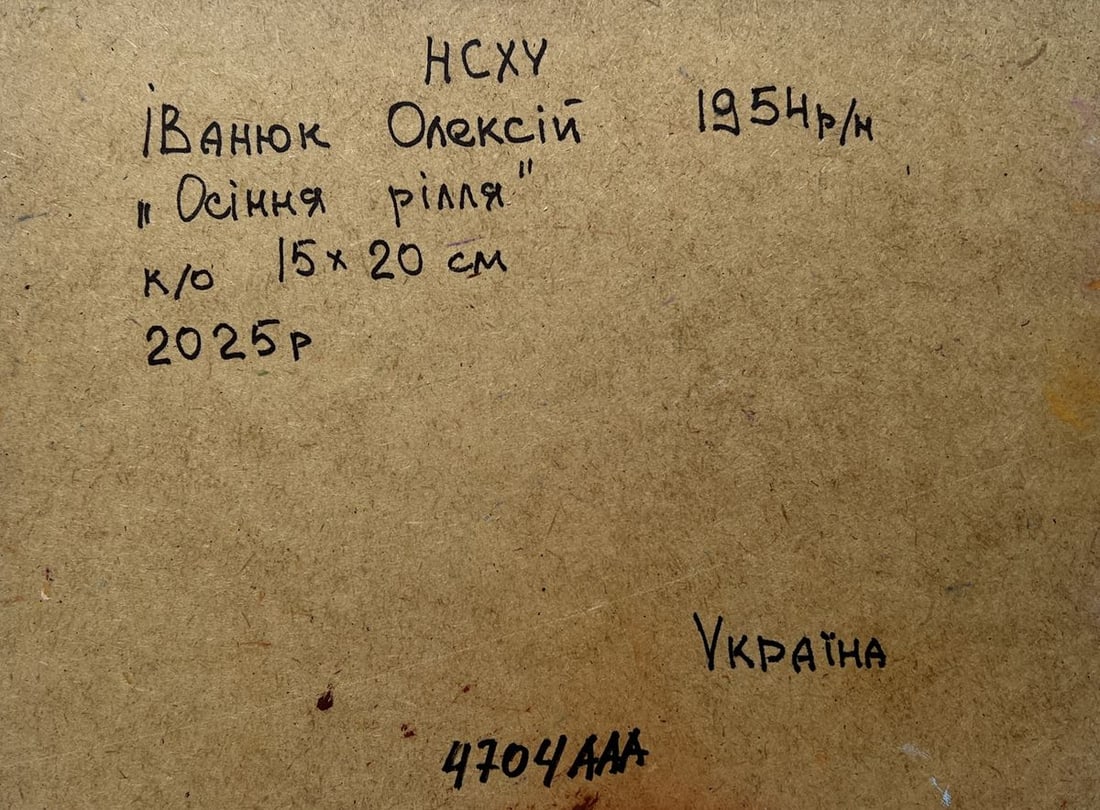 НСХУ
Іванюк Олексій 1954р/н
„Осіння рілля"
к/о 15х20 см
2025р
Україна
4704AAA